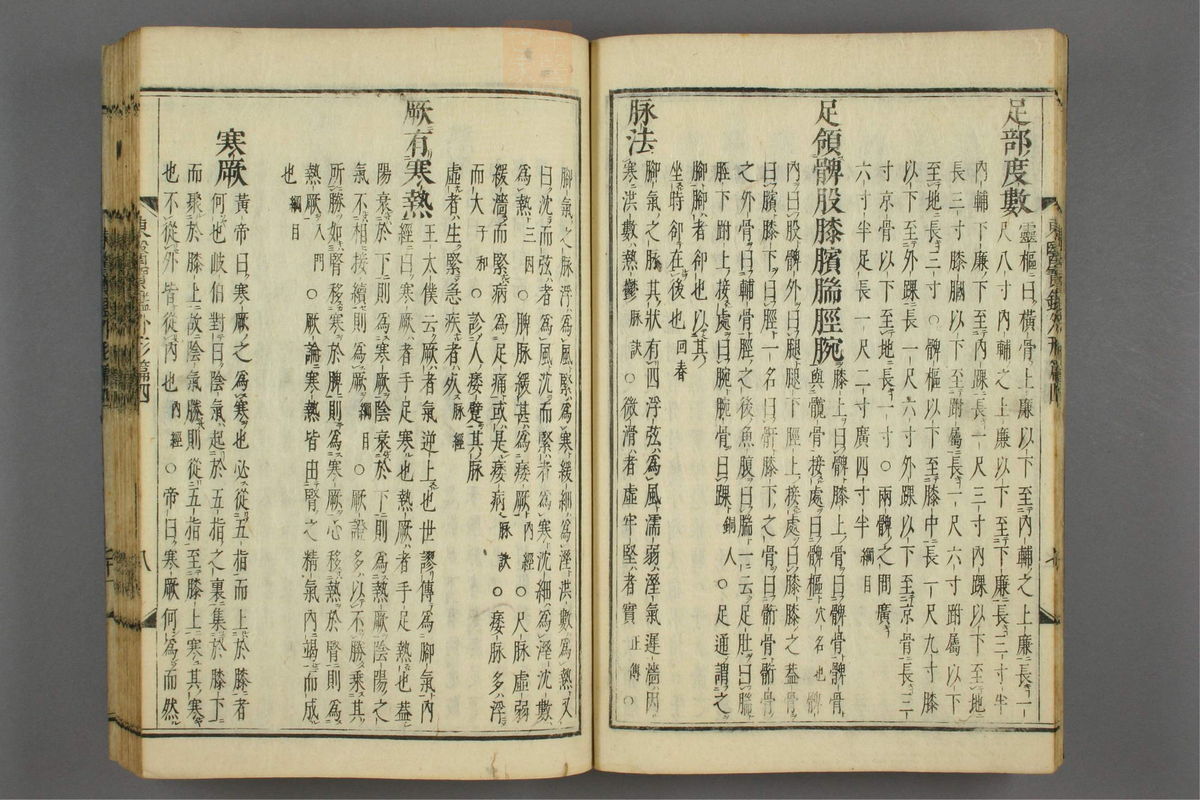 足部度數
靈樞曰橫骨上廉以下至內輔之上廉長一
尺八寸內輔之上廉以下至下廉長三寸半
內輔下廉下至內踝長一尺三寸內踝以下至地
長三寸膝膕以下至跗屬長一尺六寸跗屬以下
至地長三寸○髀樞以下至膝中長一尺九寸膝
以下至外踝長一尺六寸外踝以下至京骨長三
寸京骨以下至地長一寸○兩髀之間廣
六寸半足長一尺二寸廣四寸半綱目
足領髀股膝臏腨脛腕
膝上曰髀膝上骨曰髀骨髀骨
與髖骨接處曰髀樞穴名也髀
內曰股髀外曰腿腿下脛上接處曰膝膝之蓋骨
曰臏膝下曰脛一名曰䯒膝下之骨曰䯒骨䯒骨
之外骨曰輔骨脛之後魚腹曰腨一云足肚曰腨
脛下跗上接處曰腕腕骨曰踝銅人○足通謂之
腳腳者卻也以其
坐時卻在後也回春
脉法
腳氣之脉其狀有四浮弦爲風濡弱溼氣遲濇因
寒洪數熱鬱脉訣○微滑者虛牢堅者實正傳○
腳氣之脉浮爲風緊爲寒緩細爲溼洪數爲熱又
曰沈而弦者爲風沈而緊者爲寒沈細爲溼沈數
爲熱三因○脾脉緩甚爲痿厥內經○尺脉虛弱
緩濇而緊病爲足痛或是痿病脉訣○痿脉多浮
而大子和○診人痿躄其脉
虛者生緊急疾者死脉經
厥有寒熱
王太僕云厥者氣逆上也世謬傳爲腳氣內
經曰寒厥者手足寒也熱厥者手足熱也蓋
陽衰於下則爲寒厥陰衰於下則爲熱厥陰陽之
氣不相接續則爲厥綱目○厥證多以不勝乘其
所勝如腎移寒於脾則爲寒厥心移熱於腎則爲
熱厥入門○厥論寒熱皆由腎之精氣內竭而成
也綱目
寒厥
黃帝曰寒厥之爲寒也必從五指而上於膝者
何也岐伯對曰陰氣起於五指之裏集於膝下
而聚於膝上故陰氣勝則從五指至膝上寒其寒
也不從外皆從內也內經○帝曰寒厥何爲而然